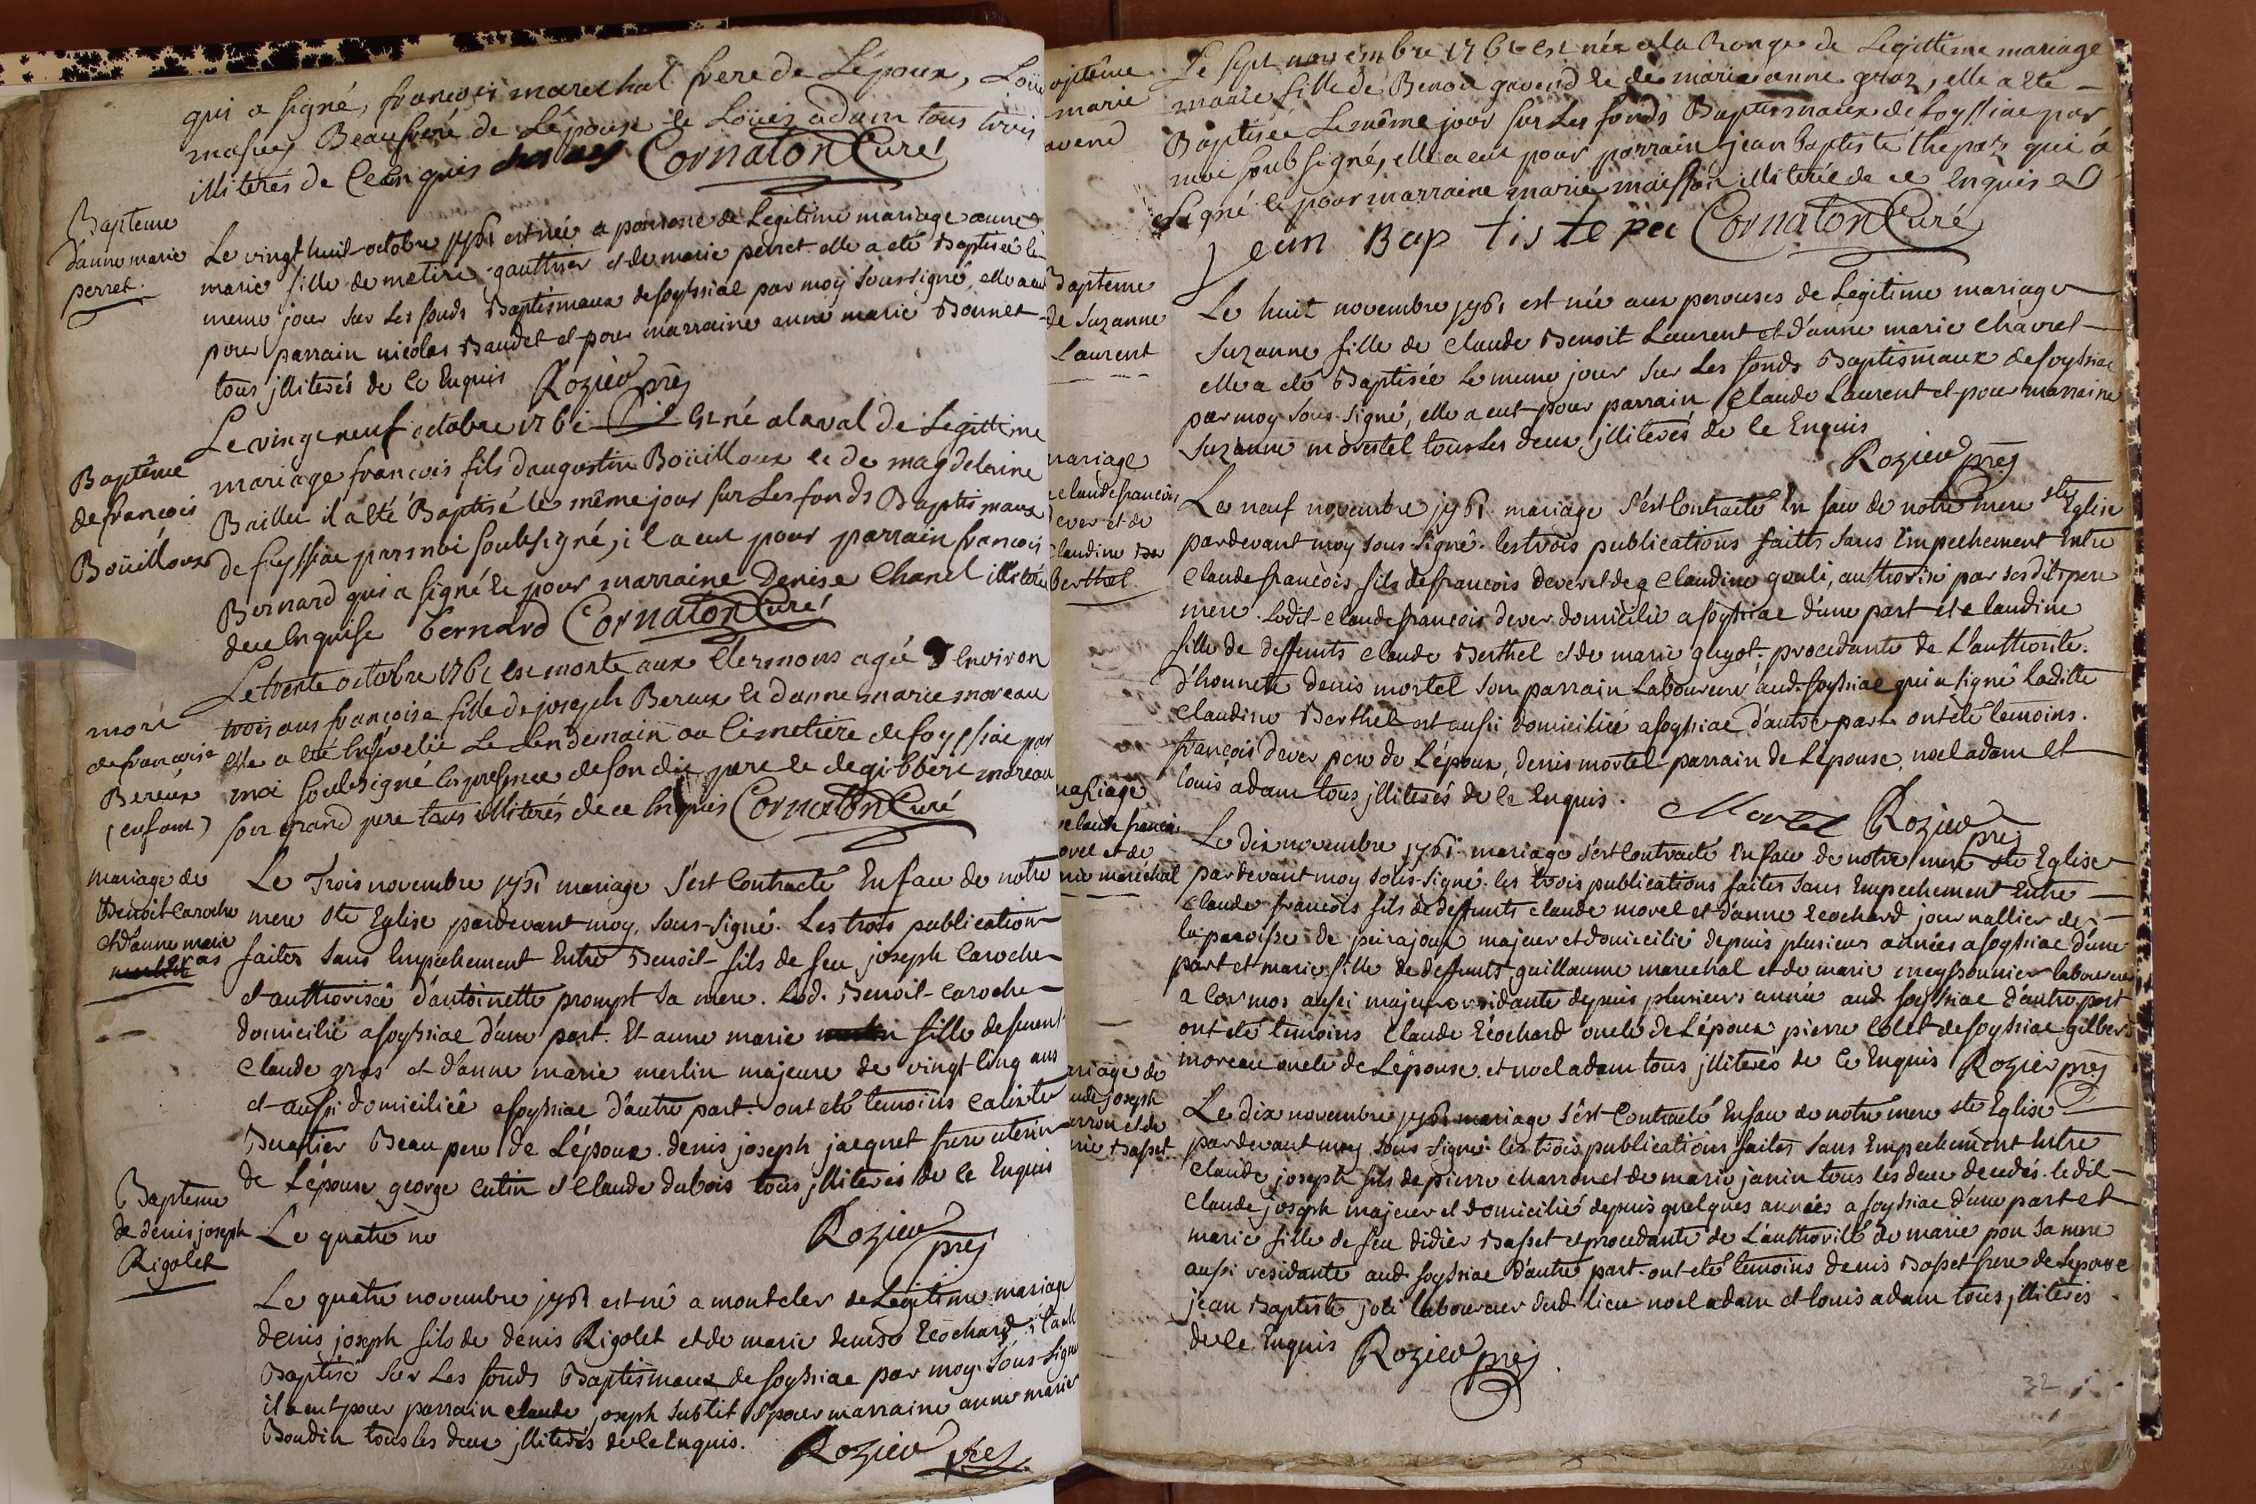 qui a signé, françois marechal frere de L'époux, Loüis
masuy Beaufrere de L'épouse et Loüis adam tous trois
illiterés de Ce enquis Cornaton Curé
Bapteme
d'anne marie
perret.
Le vingt huit octobre 1761 est née a de Legitime mariage anne
marie fille de gauthier et de marie perret elle a eté Baptisée le
meme jour sur Les fonds Baptismaux de foyssiac par moy soussigné, elle a eu
pour parrain nicolas Baudet et pour marraine anne marie Bonnet
tous jlliterés de Ce Enquis Rozier prêt
Baptême
de françois
Boüilloux
Le vingt neuf octobre 1761 Est né a Laval de Legittime
mariage françois fils d'augustin Boüilloux et de magdelaine
Baillet il a Eté Baptisé le même jour sur Les fonds Baptismaux
de foyssiac par moi soubsigné, il a eut pour parrain françois
Bernard qui a signé et pour marraine Denise Chanel illiterée
de ce Enquise bernard Cornaton Curé
mort
de françoise
Bereux
(enfant)
Le trente octobre 1761 est morte aux Clermons agée d'Environ
trois ans françoise fille de joseph Bereux et d'anne marie moreau
elle a eté Ensevelie Le Lendemain au Cimetiere de foyssiac par
moi soubsigné En presence de son dit pere et de gilbert moreau
son grand pere tous illiterés de ce Enquis Cornaton Curé
mariage de
Benoit Caroche
et d'anne marie
gras
Le Trois novembre 1761 mariage s'est Contracté En face de notre
mere Ste Eglise pardevant moy, sous-signé. Les trois publication
faites sans Empechement Entre Benoit fils de feu joseph Caroche
et authorisé d'antoinette prompt sa mere. Led. Benoit Caroche
domicilié a foyssiac d'une part. Et anne marie fille de feu
Claude gras et d'anne marie merlin majeure de vingt Cinq ans
et aussi domiciliée a foyssiac d'autre part. ont eté temoins Calixte
Buatier Beau pere de L'époux. denis joseph jacquet frere uterin
de L'épouse george Cutin et Claude dubois tous jlliterés de Ce Enquis
Rozier
prêt
Bapteme
de denis joseph
Rigolet
Le quatre no
Le quatre novembre 1761 est né a montcler de Légitime mariage
denis joseph fils de denis Rigolet et de marie denise Ecochard il a eté
Baptisé sur Les fonds Baptismaux de foyssiac par moy sous-signé
il a eut pour parrain claude joseph subtil et pour marraine anne marie
Boudin tous les deux jlliterés de Ce Enquis. Rozier prêt
aptême
marie
avend
Le sept novembre 1761 est née a la Ronge de Legittime mariage
marie fille de Benoit gavend et de marie anne graz, elle a Eté
Baptisée Le même jour sur Les fonds Baptismaux de foyssiac par
moi soubsigné, elle a eut pour parrain jean baptiste thepaz qui a
signé et pour marraine marie maisson illiterée de ce Enquise
Jean Baptiste pa Cornaton Curé
Bapteme
de Suzanne
Laurent
Le huit novembre 1761 est née aux perouses de Légitime mariage
Suzanne fille de claude Benoit Laurent et d'anne marie Chavrel
elle a eté Baptisée Le meme jour sur Les fonds Baptismaux de foyssiac
par moy sous-signé, elle a eut pour parrain Claude Laurent et pour marraine
Suzanne morestel tous Les deux jlliterés de Ce Enquis
Rozier prêt
mariage
claude françois
Dever et de
Claudine
Berthel
Le neuf novembre 1761 mariage s'est Contracté En face de notre mere Ste Eglise
pardevant moy sous-signé. les trois publications faites sans Empechement Entre
Claude françois fils de françois dever et de Claudine quali, authorisé par sesdits pere
mere. Ledit Claude françois dever domicilié a foyssiac d'une part et Claudine
fille de deffunts Claude Berthel et de marie guyot, procedante de L'authorité
d'honnete denis mortel son parrain Laboureur aud. foyssiac qui a signé Laditte
Claudine Berthel est aussi domiciliée a foyssiac d'autre part. ont eté temoins.
françois dever pere de L'époux, denis mortel parrain de L'épouse, noel adam Et
louis adam tous jlliterés de Ce Enquis.
Mortel Rozier
prêt
mariage
claude françois
orel et de
marie maréchal
Le dix novembre 1761 mariage s'est Contracté En face de notre mere Ste Eglise
pardevant moy sous-signé. les trois publications faites sans Empechement Entre
Claude françois fils de deffunts claude morel et d'anne Ecochard journallier de
la paroisse de pirajoux majeur et domicilié depuis plusieurs années a foyssiac d'une
part et marie fille de deffunts guillaume marechal et de marie meyssonnier laboureur
a Cormos aussi majeure residante depuis plusieurs année aud. foyssiac d'autre part
ont eté temoins Claude Ecochard oncle de L'époux pierre Colet de foyssiac gilbert
moreau oncle de L'épouse. et noel adam tous jlliterés de Ce Enquis Rozier prêt
ariage de
ude joseph
arron et de
rie Basset
Le dix novembre 1761 mariage s'est Contracté En face de notre mere Ste Eglise
pardevant moy sous-signé. les trois publications faites sans Empechement Entre
Claude joseph fils de pierre charron et de marie janin tous les deux decedés. ledit
Claude joseph majeur et domicilié depuis quelques années a foyssiac d'une part et
marie fille de feu didier Basset et procedante de L'authorité de marie pon sa mere
aussi residante aud. foyssiac d'autre part. ont eté temoins denis Basset frere de L'epouse
jean Baptiste joli laboureur dud. lieu noel adam et louis adam tous jlliterés
de Ce Enquis Rozier prêt.
32